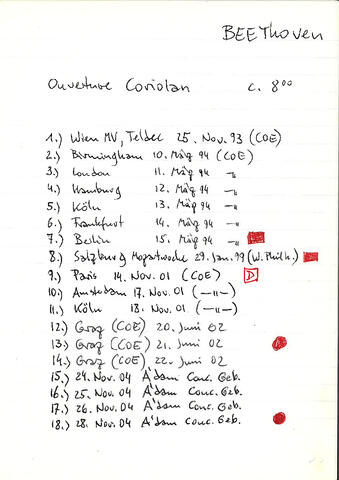 BEEThoven
Ouverture Coriolan c. 8⁰⁰
1.) Wien MV, Teldec 25. Nov. 93 (COE)
2.) Birmingham 10. März 94 (COE)
3.) London 11. März 94 -"-
4.) Hamburg 12. März 94 -"-
5.) Köln 13. März 94 -"-
6.) Frankfurt 14. März 94 -"-
7.) Berlin 15. März 94 -"-
8.) Salzburg Mozartwoche 29. Jan. 99 (W. Philh.)
9.) Paris 14. Nov. 01 (COE) D
10.) Amsterdam 17. Nov. 01 (-"-)
11.) Köln 18. Nov. 01 (-"-)
12.) Graz (COE) 20. Juni 02
13.) Graz (COE) 21. Juni 02
14.) Graz (COE) 22. Juni 02
15.) 24. Nov. 04 A'dam Conc. Geb.
16.) 25. Nov. 04 A'dam Conc. Geb.
17.) 26. Nov. 04 A'dam Conc. Geb.
18.) 28. Nov. 04 A'dam Conc. Geb.